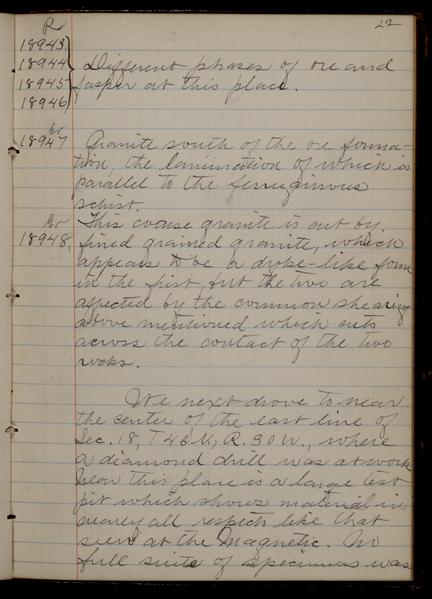 22
R
18943
18944 Different phases of ore and
18945 jasper at this place.
18946
Gr
18947 Granite south of the ore forma-
tion, the lamination of which is
parallel to the ferruginous
schist.
Gr This coarse granite is cut by
18948 fined grained granite, which
appears to be a droke-like form
in the first, but the two are
affected by the common shearing
above mentioned which cuts
across the contact of the two
rocks.
We next drove to near
the center of the east line of
Sec. 18, T 46 N, R. 30 W., where
a diamond drill was at work
Near this place is a large test
pit which shows material in
nearly all respects like that
seen at the Magnetic. No
full suite of specimens was